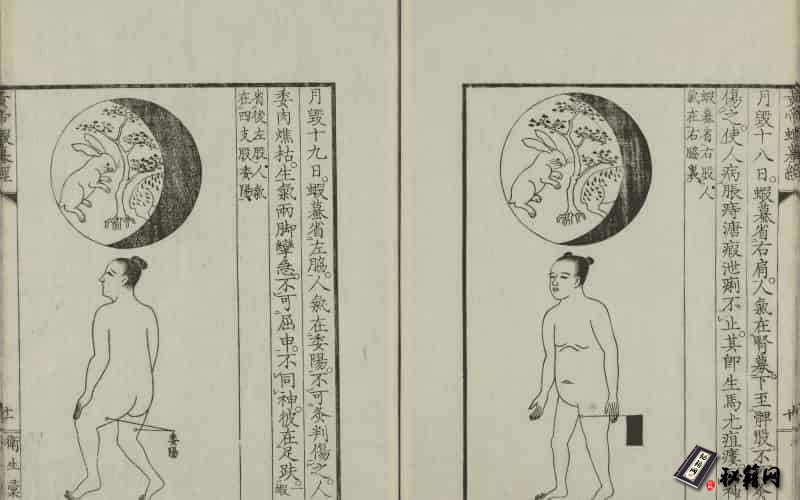 月毀十八日。蝦蟇省右肩。人氣在腎募。下至髀股。不
傷之。使人病脹痔溏瘕泄痢不止。其即生馬尤疽瘻
蝦蟇省右股。人
氣在右脇裏。
月毀十九日。蝦蟇省左脇。人氣在委陽。不可灸判傷之。人
委肉燋枯。生氣兩脚攣急。不可屈申。不同神。彼在足趺。蝦
省後左股。人氣
在四支股委陽。
委陽
衛生彙
秘籍网